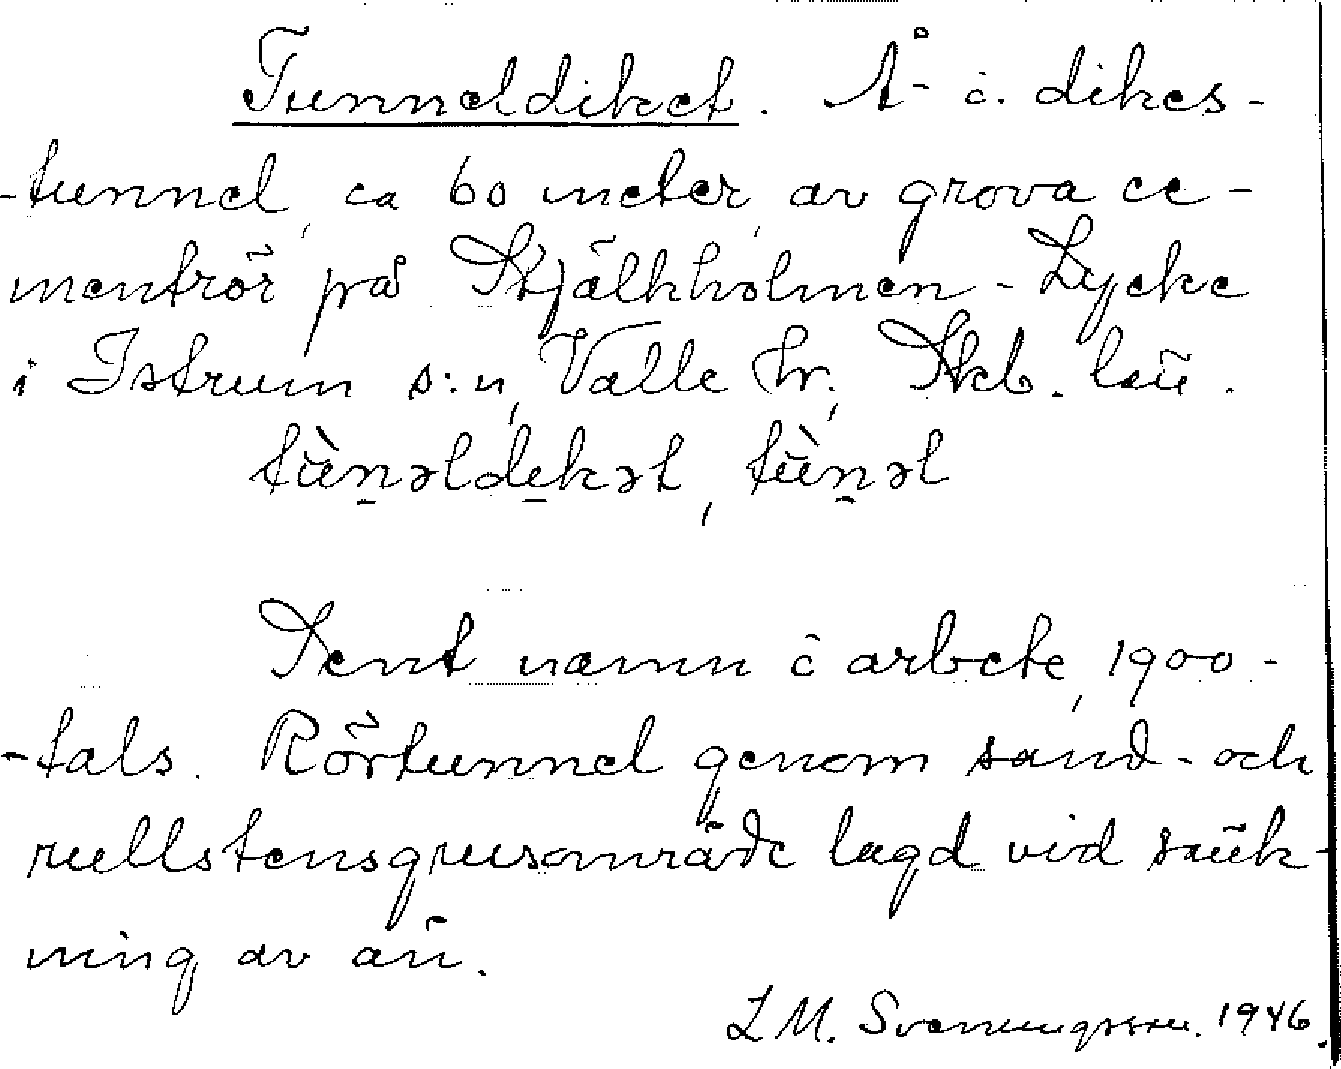 Tunneldiket. Å- l. dikes-
-tunnel, ca 60 meter, av grova ce-
mentrör på Stjälkholmen-Lycke
i Istrum s:n, Valle hr, Skb. län.
tùnəldikət, tùnəl
Sent namn i arbete, 1900-
-tals. Rörtunnel genom sand- och
rullstensgrusområde lagd vid sänk-
ning av ån.
L M. Svenungsson. 1946.